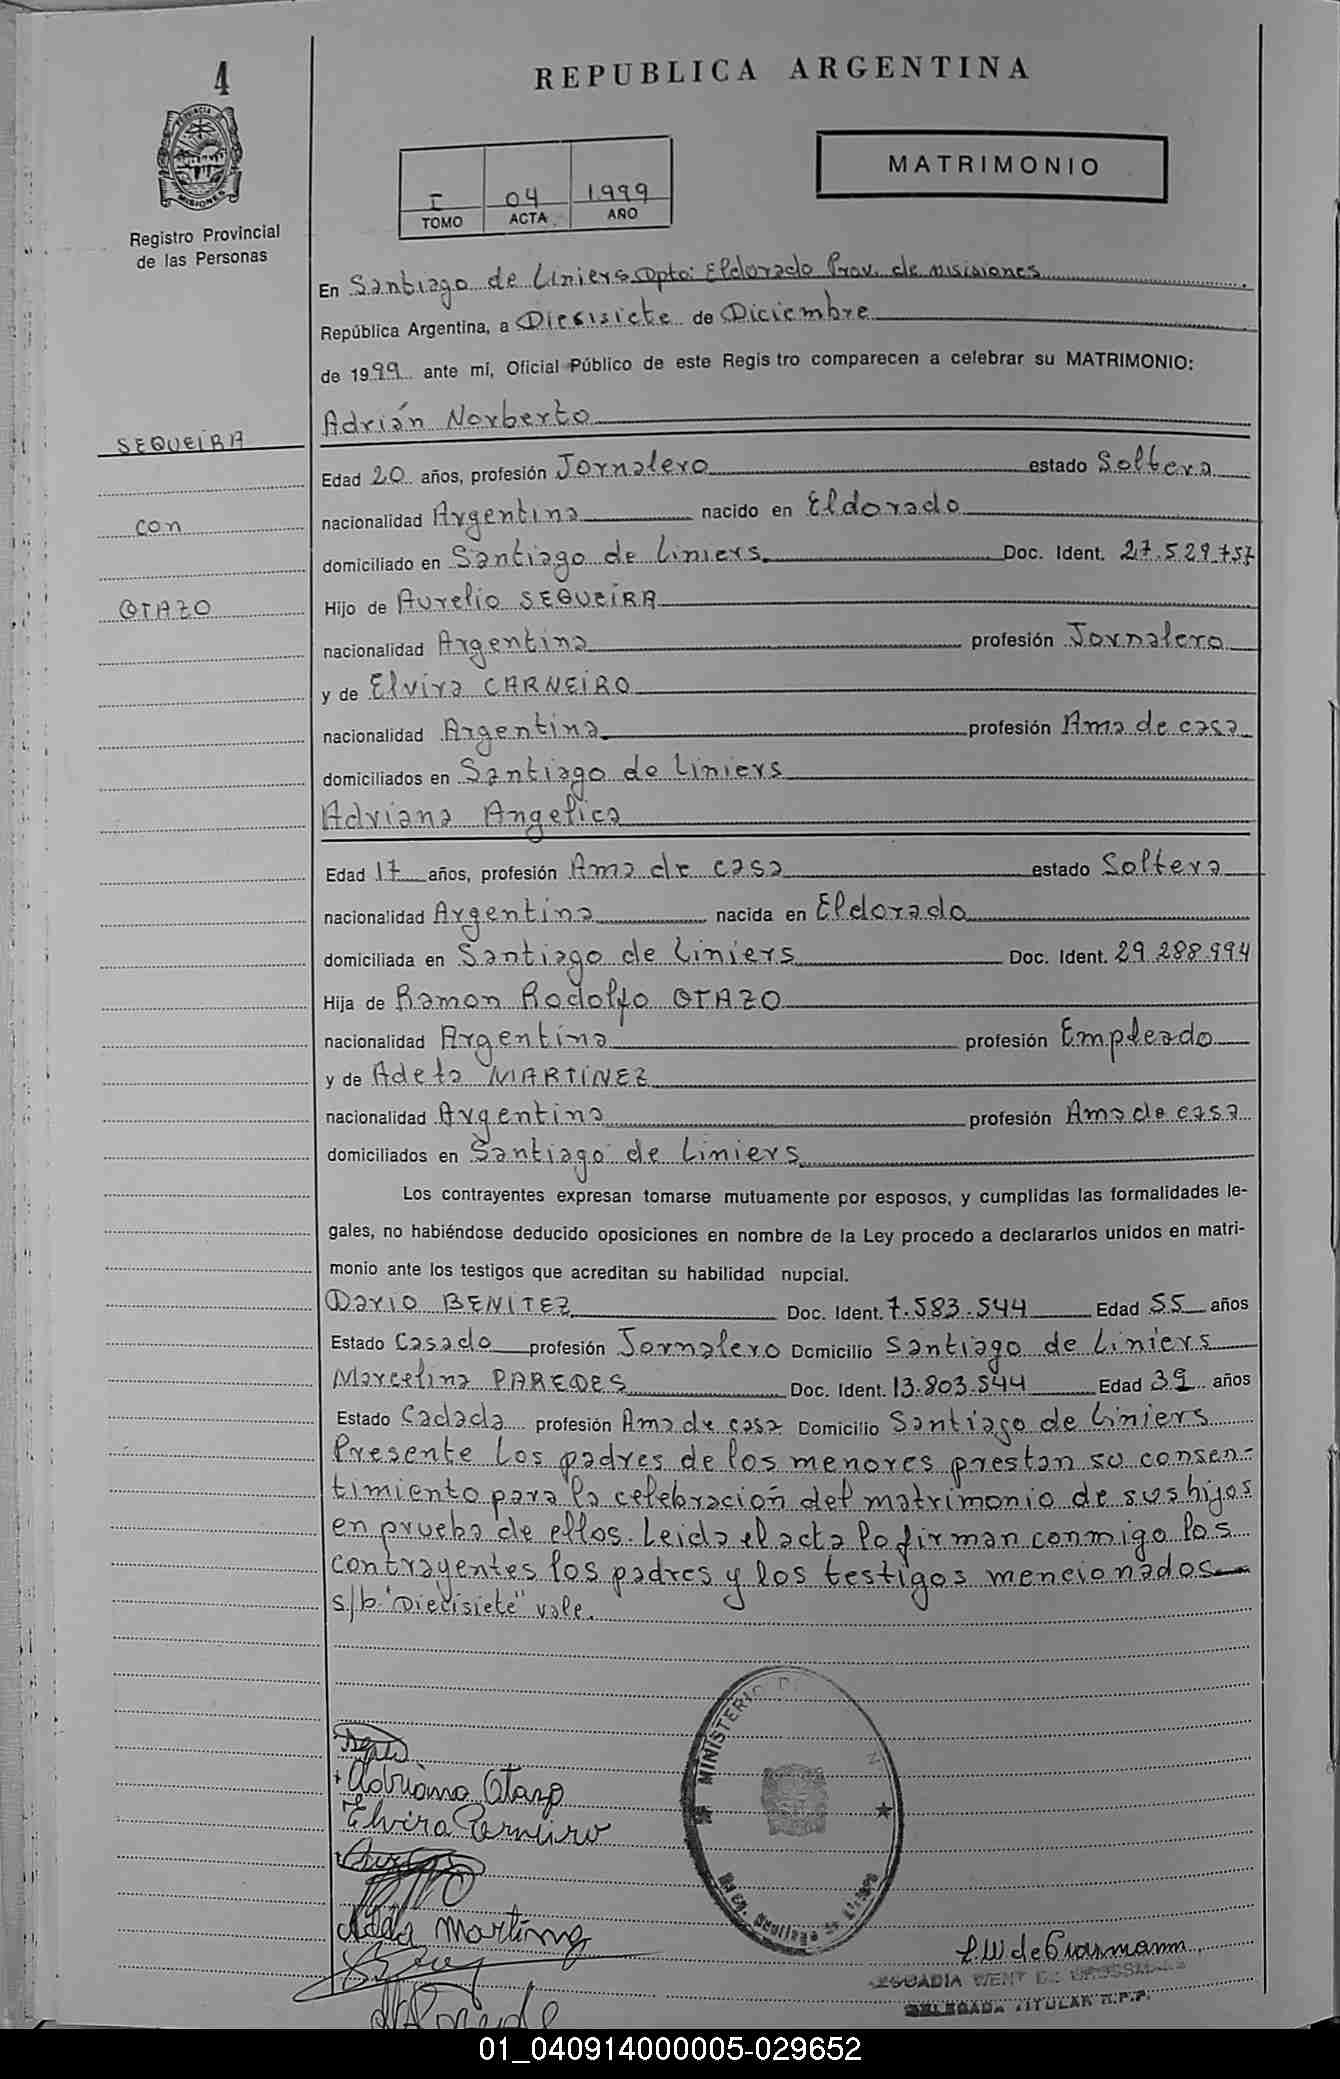 4
REPUBLICA ARGENTINA
PROVINCIA DE
MISIONES
Registro Provincial
de las Personas
I 04 1999
TOMO ACTA AÑO
MATRIMONIO
En Santiago de Liniers Dpto: Eldorado Prov. de misiones
República Argentina, a Diecisiete de Diciembre
de 1999 ante mí, Oficial Público de este Regis tro comparecen a celebrar su MATRIMONIO:
Adrián Norberto
SEQUEIRA
Edad 20 años, profesión Jornalero estado Soltera
con
nacionalidad Argentina nacido en Eldorado
domiciliado en Santiago de Liniers Doc. Ident. 27.529.757
OTAZO
Hijo de Aurelio SEQUEIRA
nacionalidad Argentina profesión Jornalero
y de Elvira CARNEIRO
nacionalidad Argentina profesión Ama de casa
domiciliados en Santiago de Liniers
Adriana Angelica
Edad 17 años, profesión Ama de casa estado Soltera
nacionalidad Argentina nacida en Eldorado
domiciliada en Santiago de Liniers Doc. Ident. 29.288.994
Hija de Ramon Rodolfo OTAZO
nacionalidad Argentina profesión Empleado
y de Adela MARTINEZ
nacionalidad Argentina profesión Ama de casa
domiciliados en Santiago de Liniers
Los contrayentes expresan tomarse mutuamente por esposos, y cumplidas las formalidades le-
gales, no habiéndose deducido oposiciones en nombre de la Ley procedo a declararlos unidos en matri-
monio ante los testigos que acreditan su habilidad nupcial.
Dario BENITEZ Doc. Ident. 7.583.544 Edad 55 años
Estado Casado profesión Jornalero Domicilio Santiago de Liniers
Marcelina PAREDES Doc. Ident. 13.803.544 Edad 39 años
Estado Cadada profesión Ama de casa Domicilio Santiago de Liniers
Presente Los padres de los menores prestan su consen-
timiento para la celebración del matrimonio de sus hijos
en prueba de ellos. Leida el acta lo firman conmigo los
contrayentes los padres y los testigos mencionados
s/b "Diecisiete" vale.
MINISTERIO
Adriana Otazo
Elvira Carneiro
Adela Martinez
L.W de Grossmann
WENT DE GROSSMANN
DELEGADA TITULAR R.P.P.
01_040914000005-029652